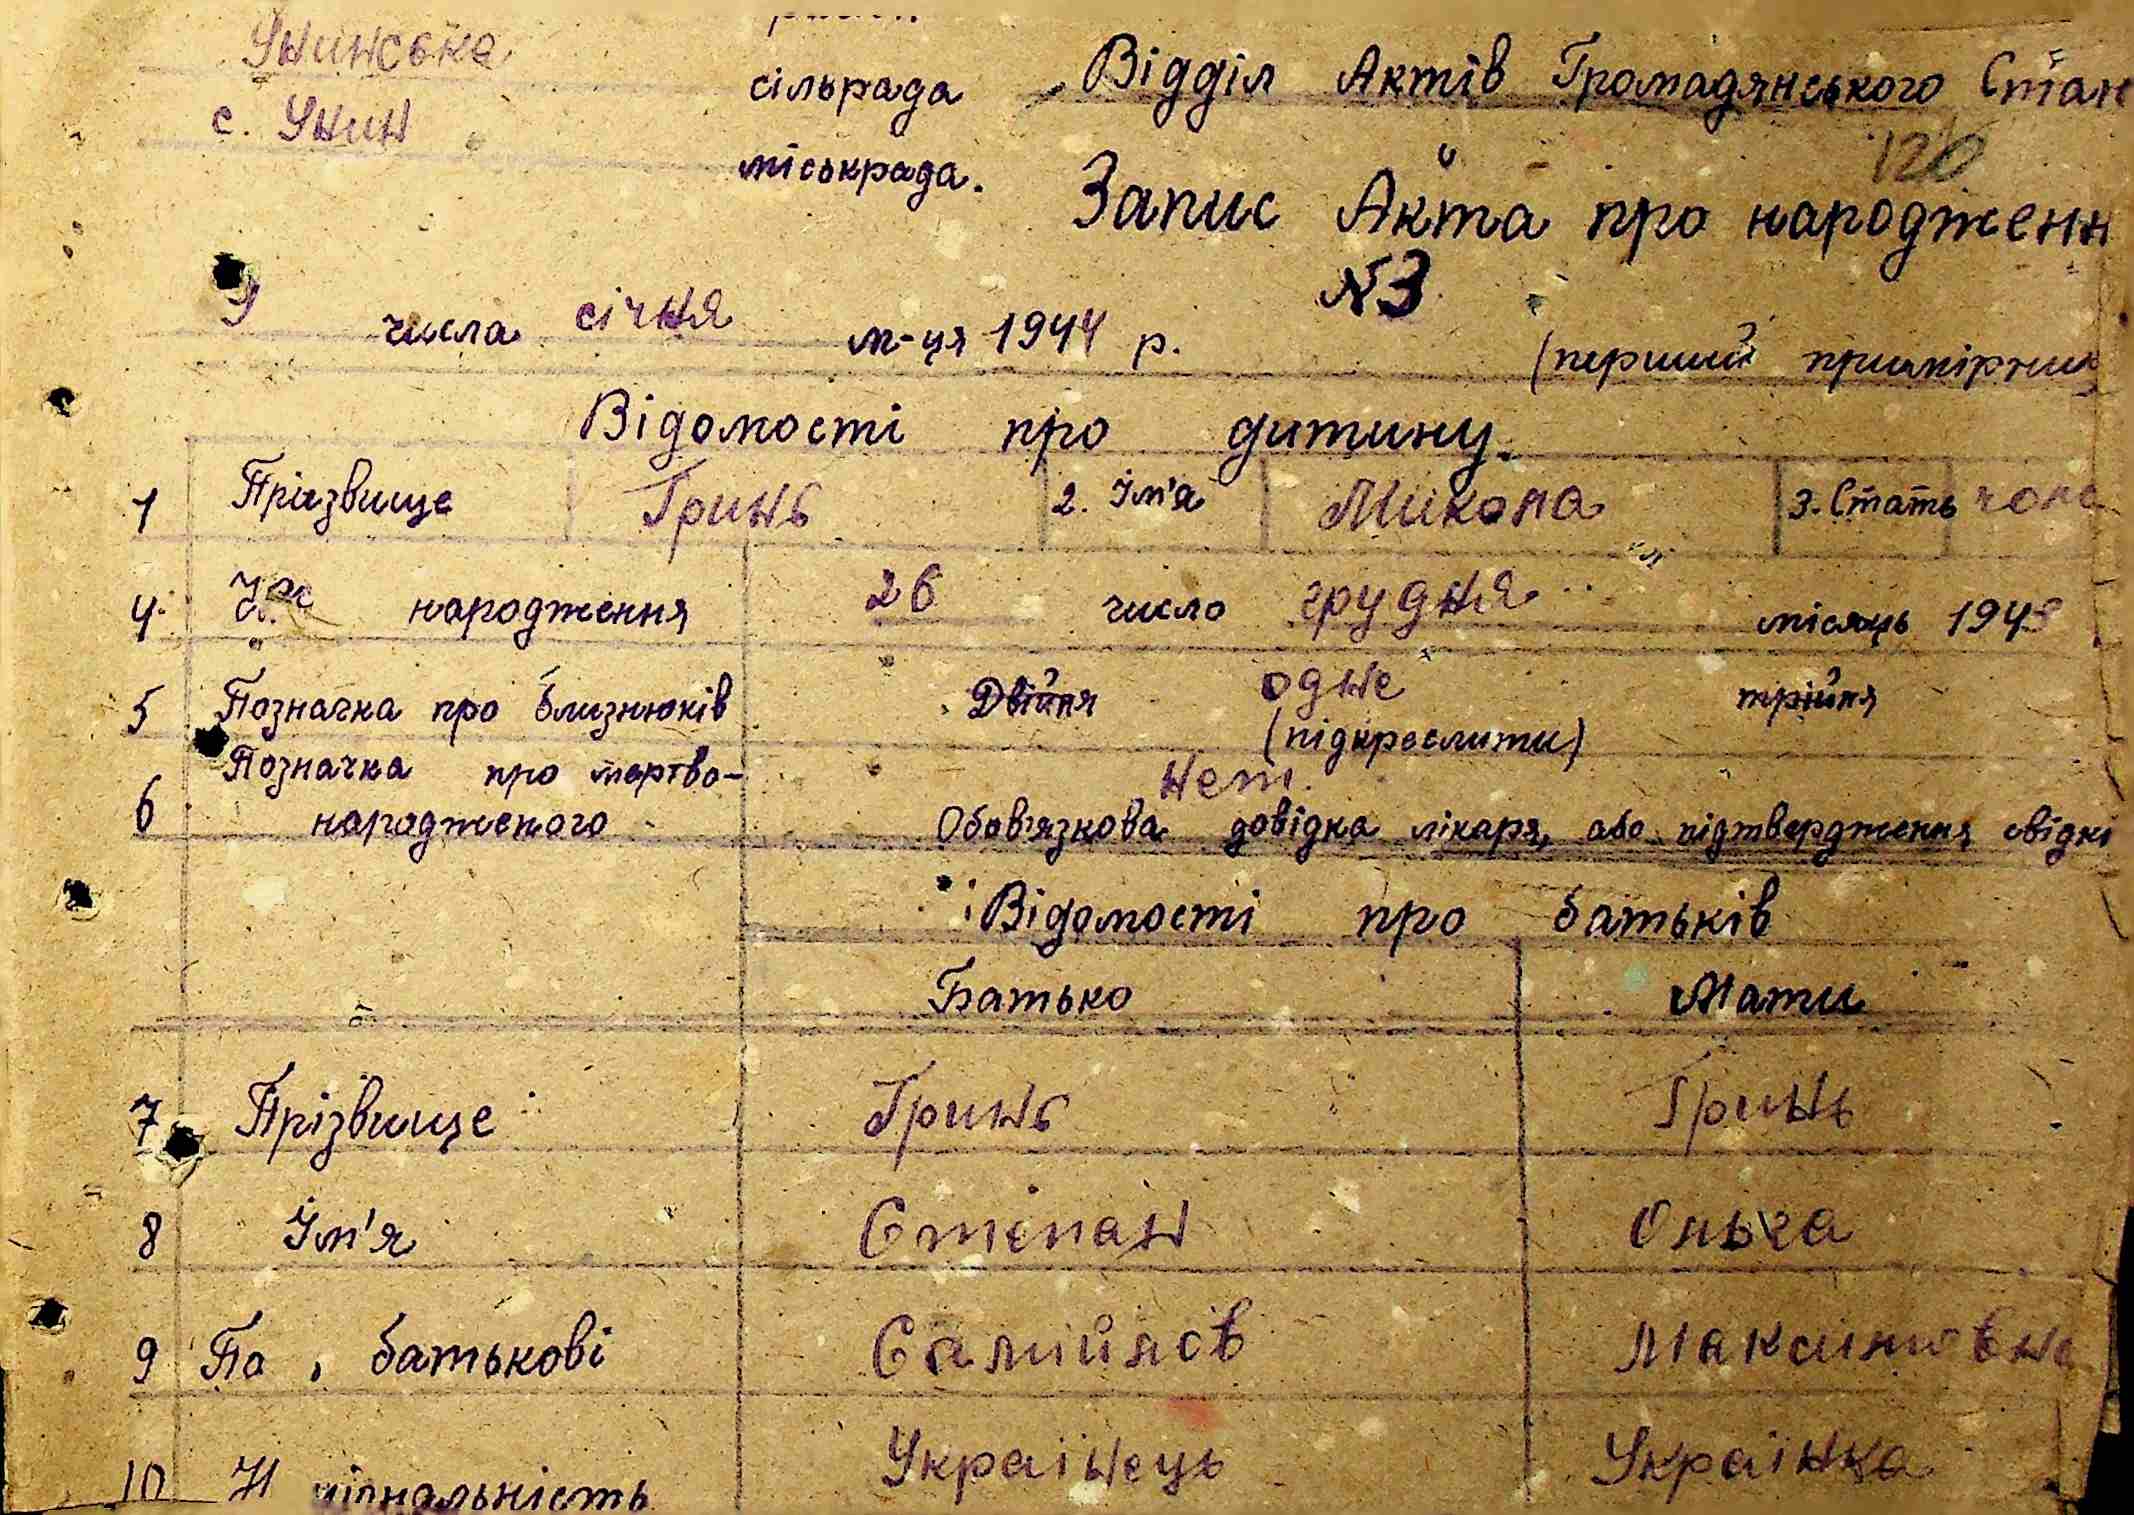 Унинська сільрада Відділ Актів Громадянського Стан
с. Унин міськрада. 120
Запис Акта про народженн
№3
9 числа січня м-ця 1944 р.
(перший примірник
Відомості про дитину.
1 Прізвище Гринь 2. Ім'я Микола 3. Стать чоло
4. народження 26 число грудня місяць 1943
5 Позначка про близнюків Двійня одне трійня
(підкреслити)
6 Позначка про мертво-
народженого нет.
Обов'язкова довідка лікаря, або підтвердження свідкі
Відомості про батьків
Батько Мати
7 Прізвище Гринь Гринь
8 Ім'я Степан Ольга
9 По батькові Самійлов Максимовна
10 Н ціональність Українець Українка